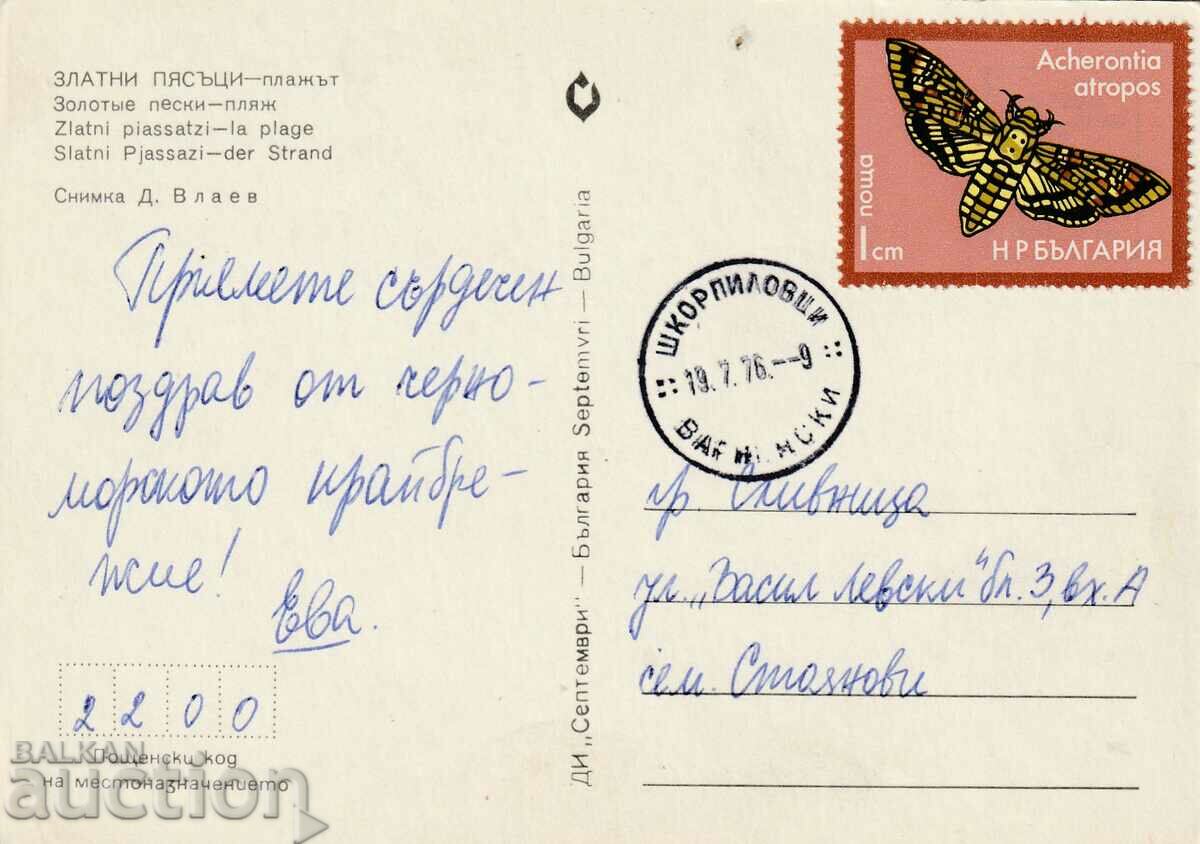 ЗЛАТНИ ПЯСЪЦИ—плажът
Золотые пески—пляж
Zlatni piassatzi—la plage
Slatni Pjassazi—der Strand
Снимка Д. Влаев
Приемете сърдечен
поздрав от черно-
морското крайбре-
жие!
Ева.
2 2 0 0
Пощенски код
на местоназначението
BALKAN
auction
ДИ „Септември" — България Septemvri — Bulgaria
Acherontia
atropos
поща
1 cm
НР БЪЛГАРИЯ
ШКОРПИЛОВЦИ
19.7.76.--9
ВАРНЕНСКИ
гр. Сливница
ул. „Васил Левски" бл. 3, вх. А
сем. Стоянови